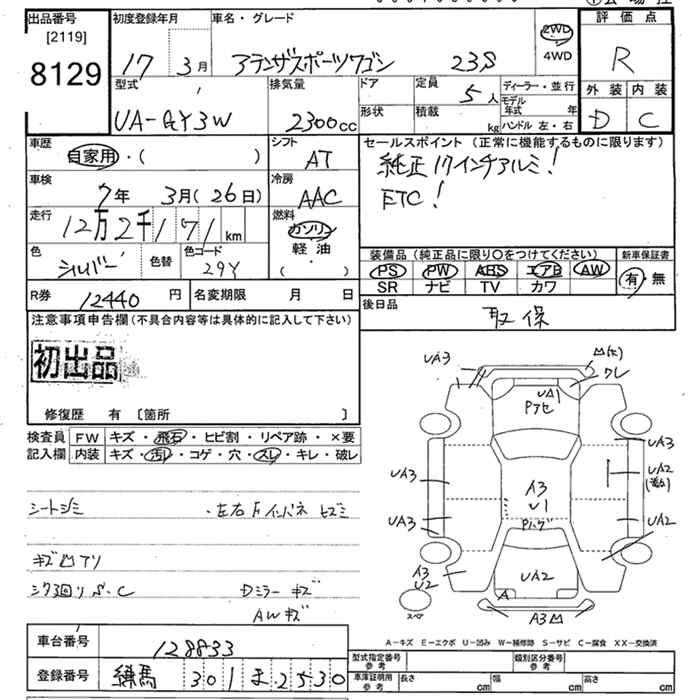 出品番号
[2119]
8129
初度登録年月
17 3月
車名・グレード
アテンザスポーツワゴン 23S
2WD
4WD
評価点
R
外装 内装
D C
型式
UA-GY3W
排気量
2300cc
ドア
形状
定員
5人
積載
kg
ディーラー・並行
モデル年式 年
ハンドル 左・右
車歴
自家用・( )
シフト
AT
セールスポイント (正常に機能するものに限ります)
純正17インチアルミ!
ETC!
車検
7年 3月(26日)
冷房
AAC
走行
12万2千171km
燃料
ガソリン
軽油
( )
色
シルバー
色替
色コード
29Y
装備品 (純正品に限り〇をつけてください)
PS PW ABS エアB AW
SR ナビ TV カワ
新車保証書
有・無
R券 12440円
名変期限 月 日
後日品
取保
注意事項申告欄(不具合内容等は具体的に記入して下さい)
初出品
修復歴 有 〔箇所 〕
検査員記入欄
FW キズ・飛石・ヒビ割・リペア跡・×要
内装 キズ・汚レ・コゲ・穴・スレ・キレ・破レ
シートシミ ・左右Fインパネ ヒズミ
キズ凹アリ
シタ廻リ S.C Dミラーキズ
AWキズ
UA3
ワレ
UA1
Pアセ
UA3
UA3
UA2
UA3
A3
U1
UA2
Pハグ
A3
U2
UA2
A
A3凹
スペア
A-キズ E-エクボ U-凹み W-補修跡 S-サビ C-腐食 XX-交換済
車台番号 128833
登録番号 練馬 301 ま 2530
型式指定番号 参考
類別区分番号 参考
車庫証明用 参考
長さ cm 幅 cm 高さ cm